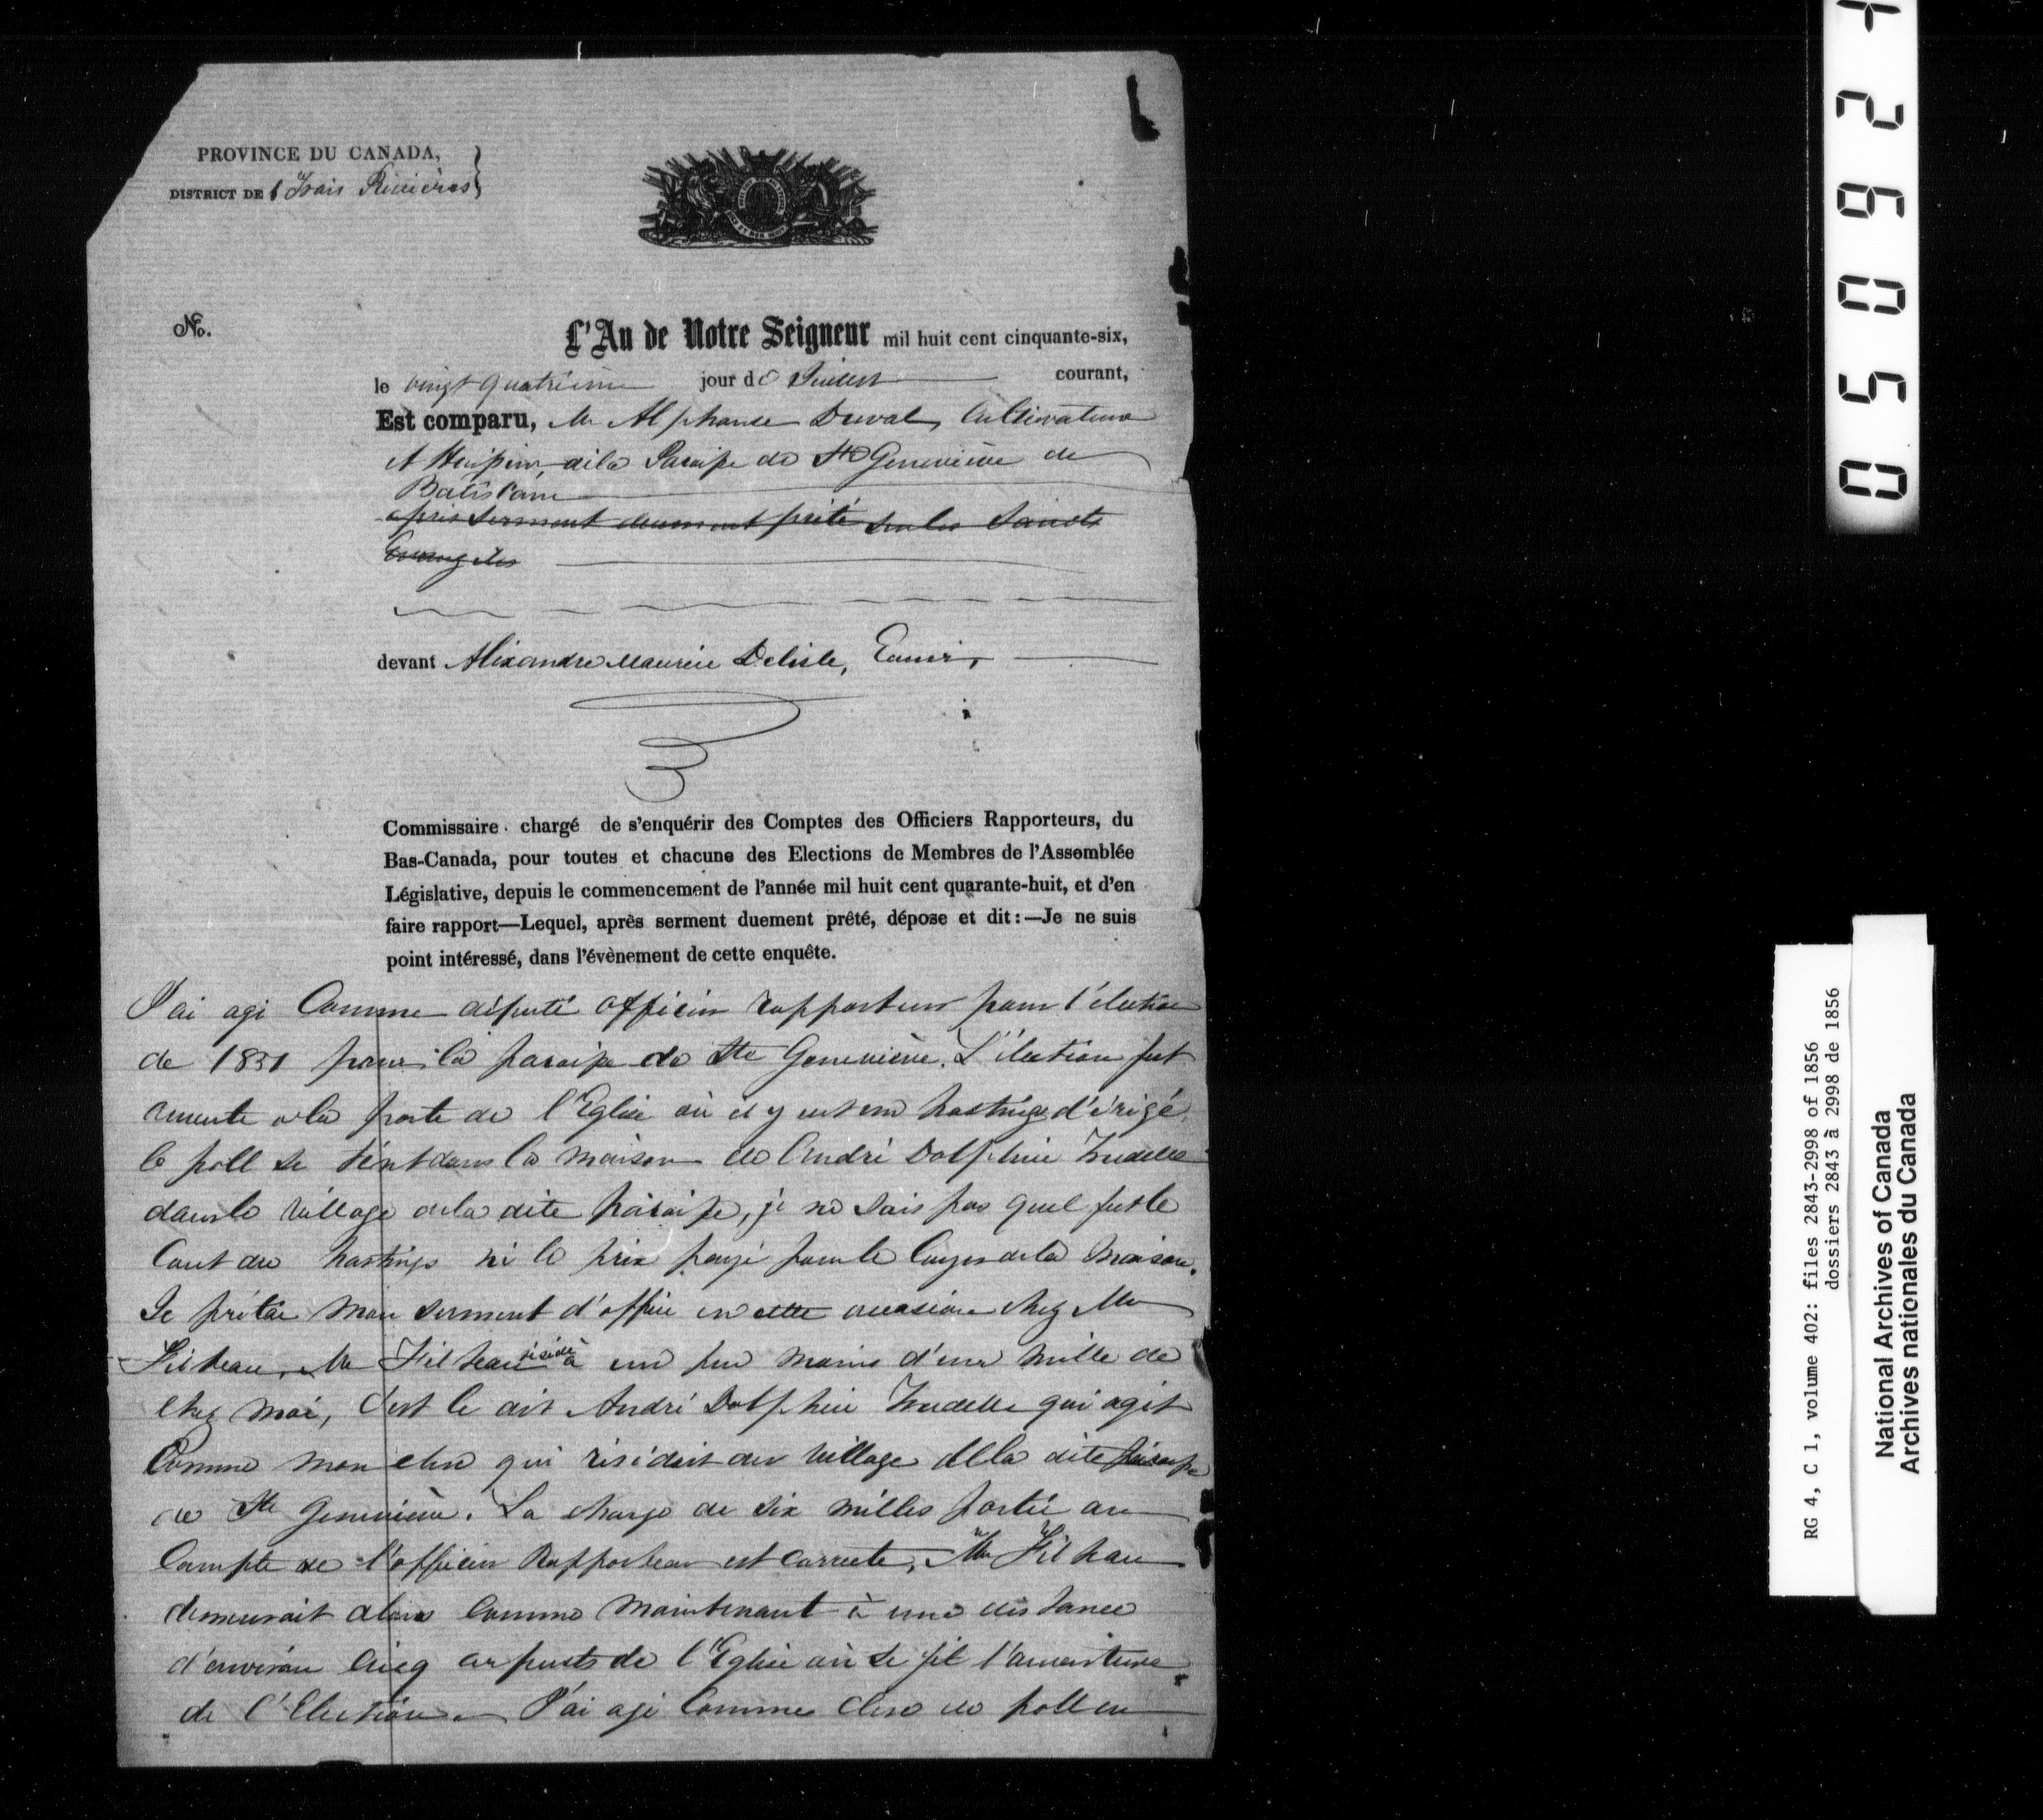 PROVINCE DU CANADA,
DISTRICT DE Trois Rivières
No.
L'An de Notre Seigneur mil huit cent cinquante-six,
le vingt quatrième jour de Juillet courant,
Est comparu, Mr Alphonse Duval, Cultivateur
et Huissier, de la Paroisse de Ste Geneviève de
Batiscan
après serment duement prêté sur les Saints
Evangiles
devant Alexandre Maurice Delisle, Ecuier,
Commissaire chargé de s'enquérir des Comptes des Officiers Rapporteurs, du
Bas-Canada, pour toutes et chacune des Elections de Membres de l'Assemblée
Législative, depuis le commencement de l'année mil huit cent quarante-huit, et d'en
faire rapport—Lequel, après serment duement prêté, dépose et dit:—Je ne suis
point intéressé, dans l'évènement de cette enquête.
J'ai agi comme député officier rapporteur pour l'élection
de 1851 pour la paroisse de Ste Geneviève. L'élection fut
ouverte à la porte de l'Eglise où il y eut un hustings d'érigé.
le poll se tint dans la maison de André Dolphin Trudelle
dans le village de la dite paroisse, je ne sais pas quel fut le
cout du hustings ni le prix payé pour le loyer de la maison.
Je prêtai mon serment d'office en cette occasion chez Mr
Filteau, Mr Filteau réside à un peu moins d'un mille de
chez moi, c'est le dit André Dolphin Trudelle qui agit
comme mon clerc qui résidait au village de la dite paroisse
de Ste Geneviève. La charge de six milles portée au
compte de l'officier Rapporteur est correcte, Mr Filteau
demeurait alors comme maintenant à une distance
d'environ cinq arpents de l'Eglise où se fit l'ouverture
de l'Election. J'ai agi comme clerc de poll en
05092
RG 4, C 1, volume 402: files 2843-2998 of 1856
dossiers 2843 à 2998 de 1856
National Archives of Canada
Archives nationales du Canada